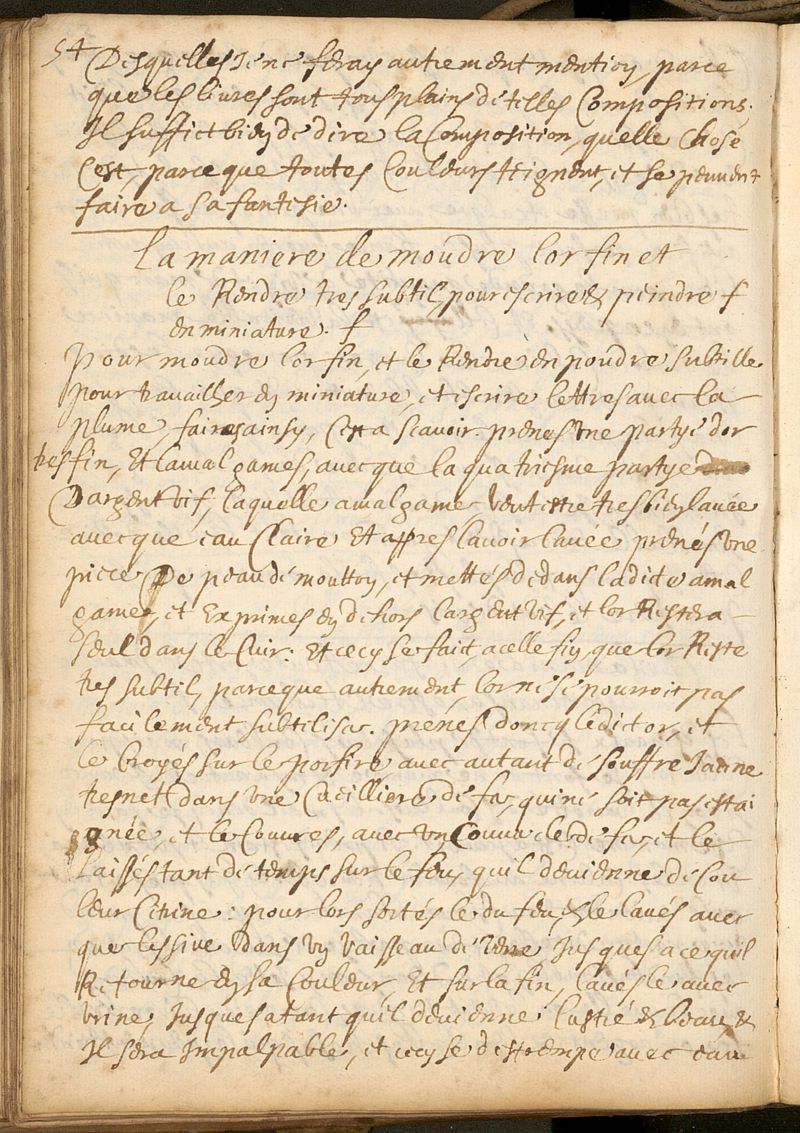 54
Desquelles Je ne feray autrement mention, parce
que les livres sont tous plains de telles Compositions.
Il suffict bien de dire la Composition, quelle chose
C'est, parce que toutes Couleurs teignent, et se peuvent
faire a sa fantesie.
La maniere de moudre lor fin et
le Rendre tres subtil, pour escrire & peindre
en miniature.
Pour moudre lor fin, et le Rendre en poudre subtille
pour travailler en miniature, et escrire lettres avec la
plume, faires ainsy, C'est a scavoir. prenes Une partye d'or
tres fin, Et lamalgames, avecque la quatriesme partye
D'argent vif, laquelle amalgame veut estre tres bien lavée
avecque eau Claire Et appres lavoir lavée prenés Une
piece De peau de moutton, et mettés dedans ladicte amal
game, et Exprimes en dehors l'argent vif, et lor Restera
seul dans le Cuir: Et cecy se faict, acelle fin, que lor Reste
tres subtil, parce que autrement, lor ne se pourroit pas
facilement subtiliser. prenés doncq ledict or, et
le broyés sur le porfire, avec autant de souffre Jaune
tres net dans Une Cueilliere de fer, qui ne soit pas estai
gnée, et le Couvres, avec un Couvercle de fer, et le
laissés tant de temps sur le feu, quil devienne de Cou
leur Citrine: pour lors sortés le du feu, & le lavés avec
que lessive dans un vaisseau de Terre Jusques a ce quil
Retourne en sa Couleur, Et sur la fin, lavés le avec
urine, Jusques a tant quil devienne lustré & beau, &
Il sera Impalpable, et cecy se destrempe avec eau